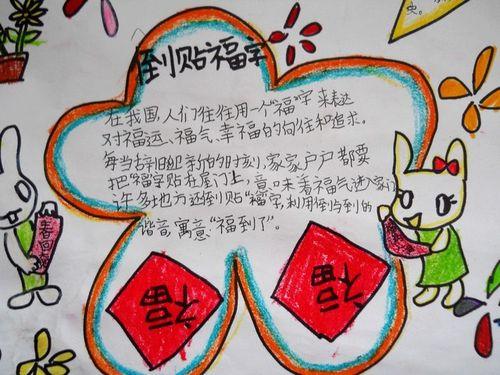 倒贴福字
在我国,人们往往用一个“福”字来表达
对福运、福气、幸福的向往和追求。
每当辞旧迎新的时刻,家家户户都要
把“福”字贴在屋门上,意味着福气进入家门
许多地方还倒贴“福”字,利用倒与到的
谐音,寓意:“福到了”。
福
福
春回